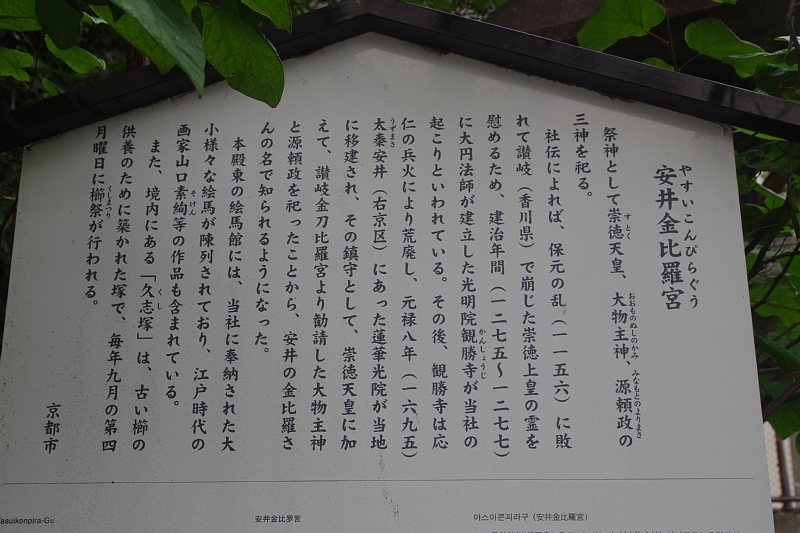 やすいこんぴらぐう
安井金比羅宮
祭神として崇徳天皇、大物主神、源頼政の
すとく
おおものぬしのかみ
みなもとのよりまさ
三神を祀る。
社伝によれば、保元の乱（一一五六）に敗
れて讃岐（香川県）で崩じた崇徳上皇の霊を
慰めるため、建治年間（一二七五〜一二七七）
に大円法師が建立した光明院観勝寺が当社の
かんしょうじ
起こりといわれている。その後、観勝寺は応
仁の兵火により荒廃し、元禄八年（一六九五）
太秦安井（右京区）にあった蓮華光院が当地
うずまさ
に移建され、その鎮守として、崇徳天皇に加
えて、讃岐金刀比羅宮より勧請した大物主神
と源頼政を祀ったことから、安井の金比羅さ
んの名で知られるようになった。
本殿東の絵馬館には、当社に奉納された大
小様々な絵馬が陳列されており、江戸時代の
画家山口素絢等の作品も含まれている。
そけん
また、境内にある「久志塚」は、古い櫛の
くし
供養のために築かれた塚で、毎年九月の第四
月曜日に櫛祭が行われる。
くしまつり
京都市
Yasuikonpira-Gu
安井金比罗宫
야스이콘피라구 (安井金比羅宮)